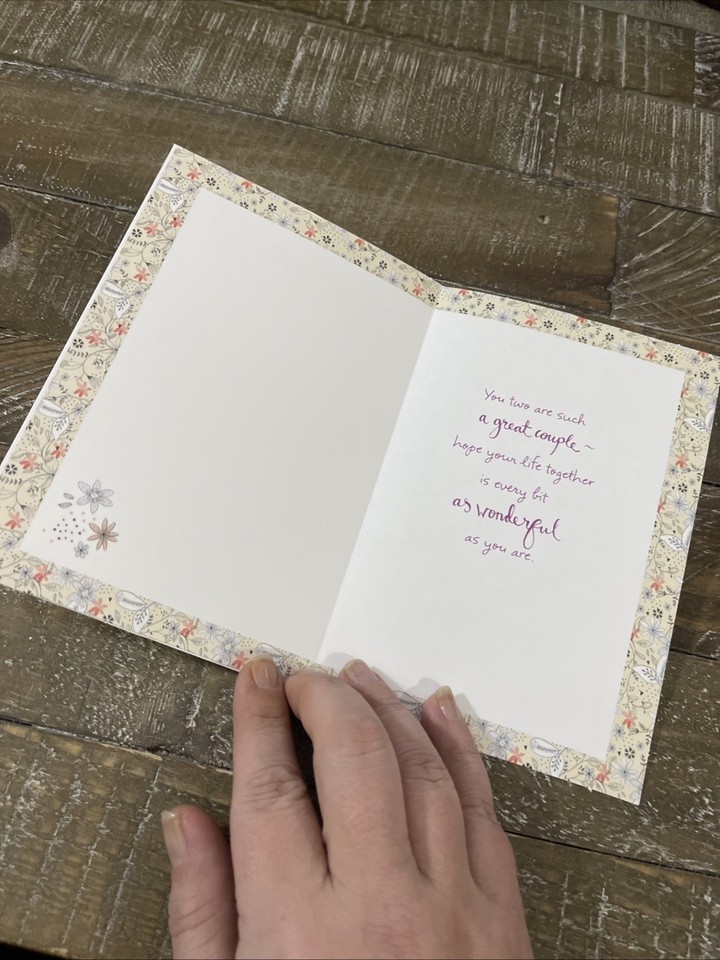 You two are such
a great couple ~
hope your life together
is every bit
as wonderful
as you are.